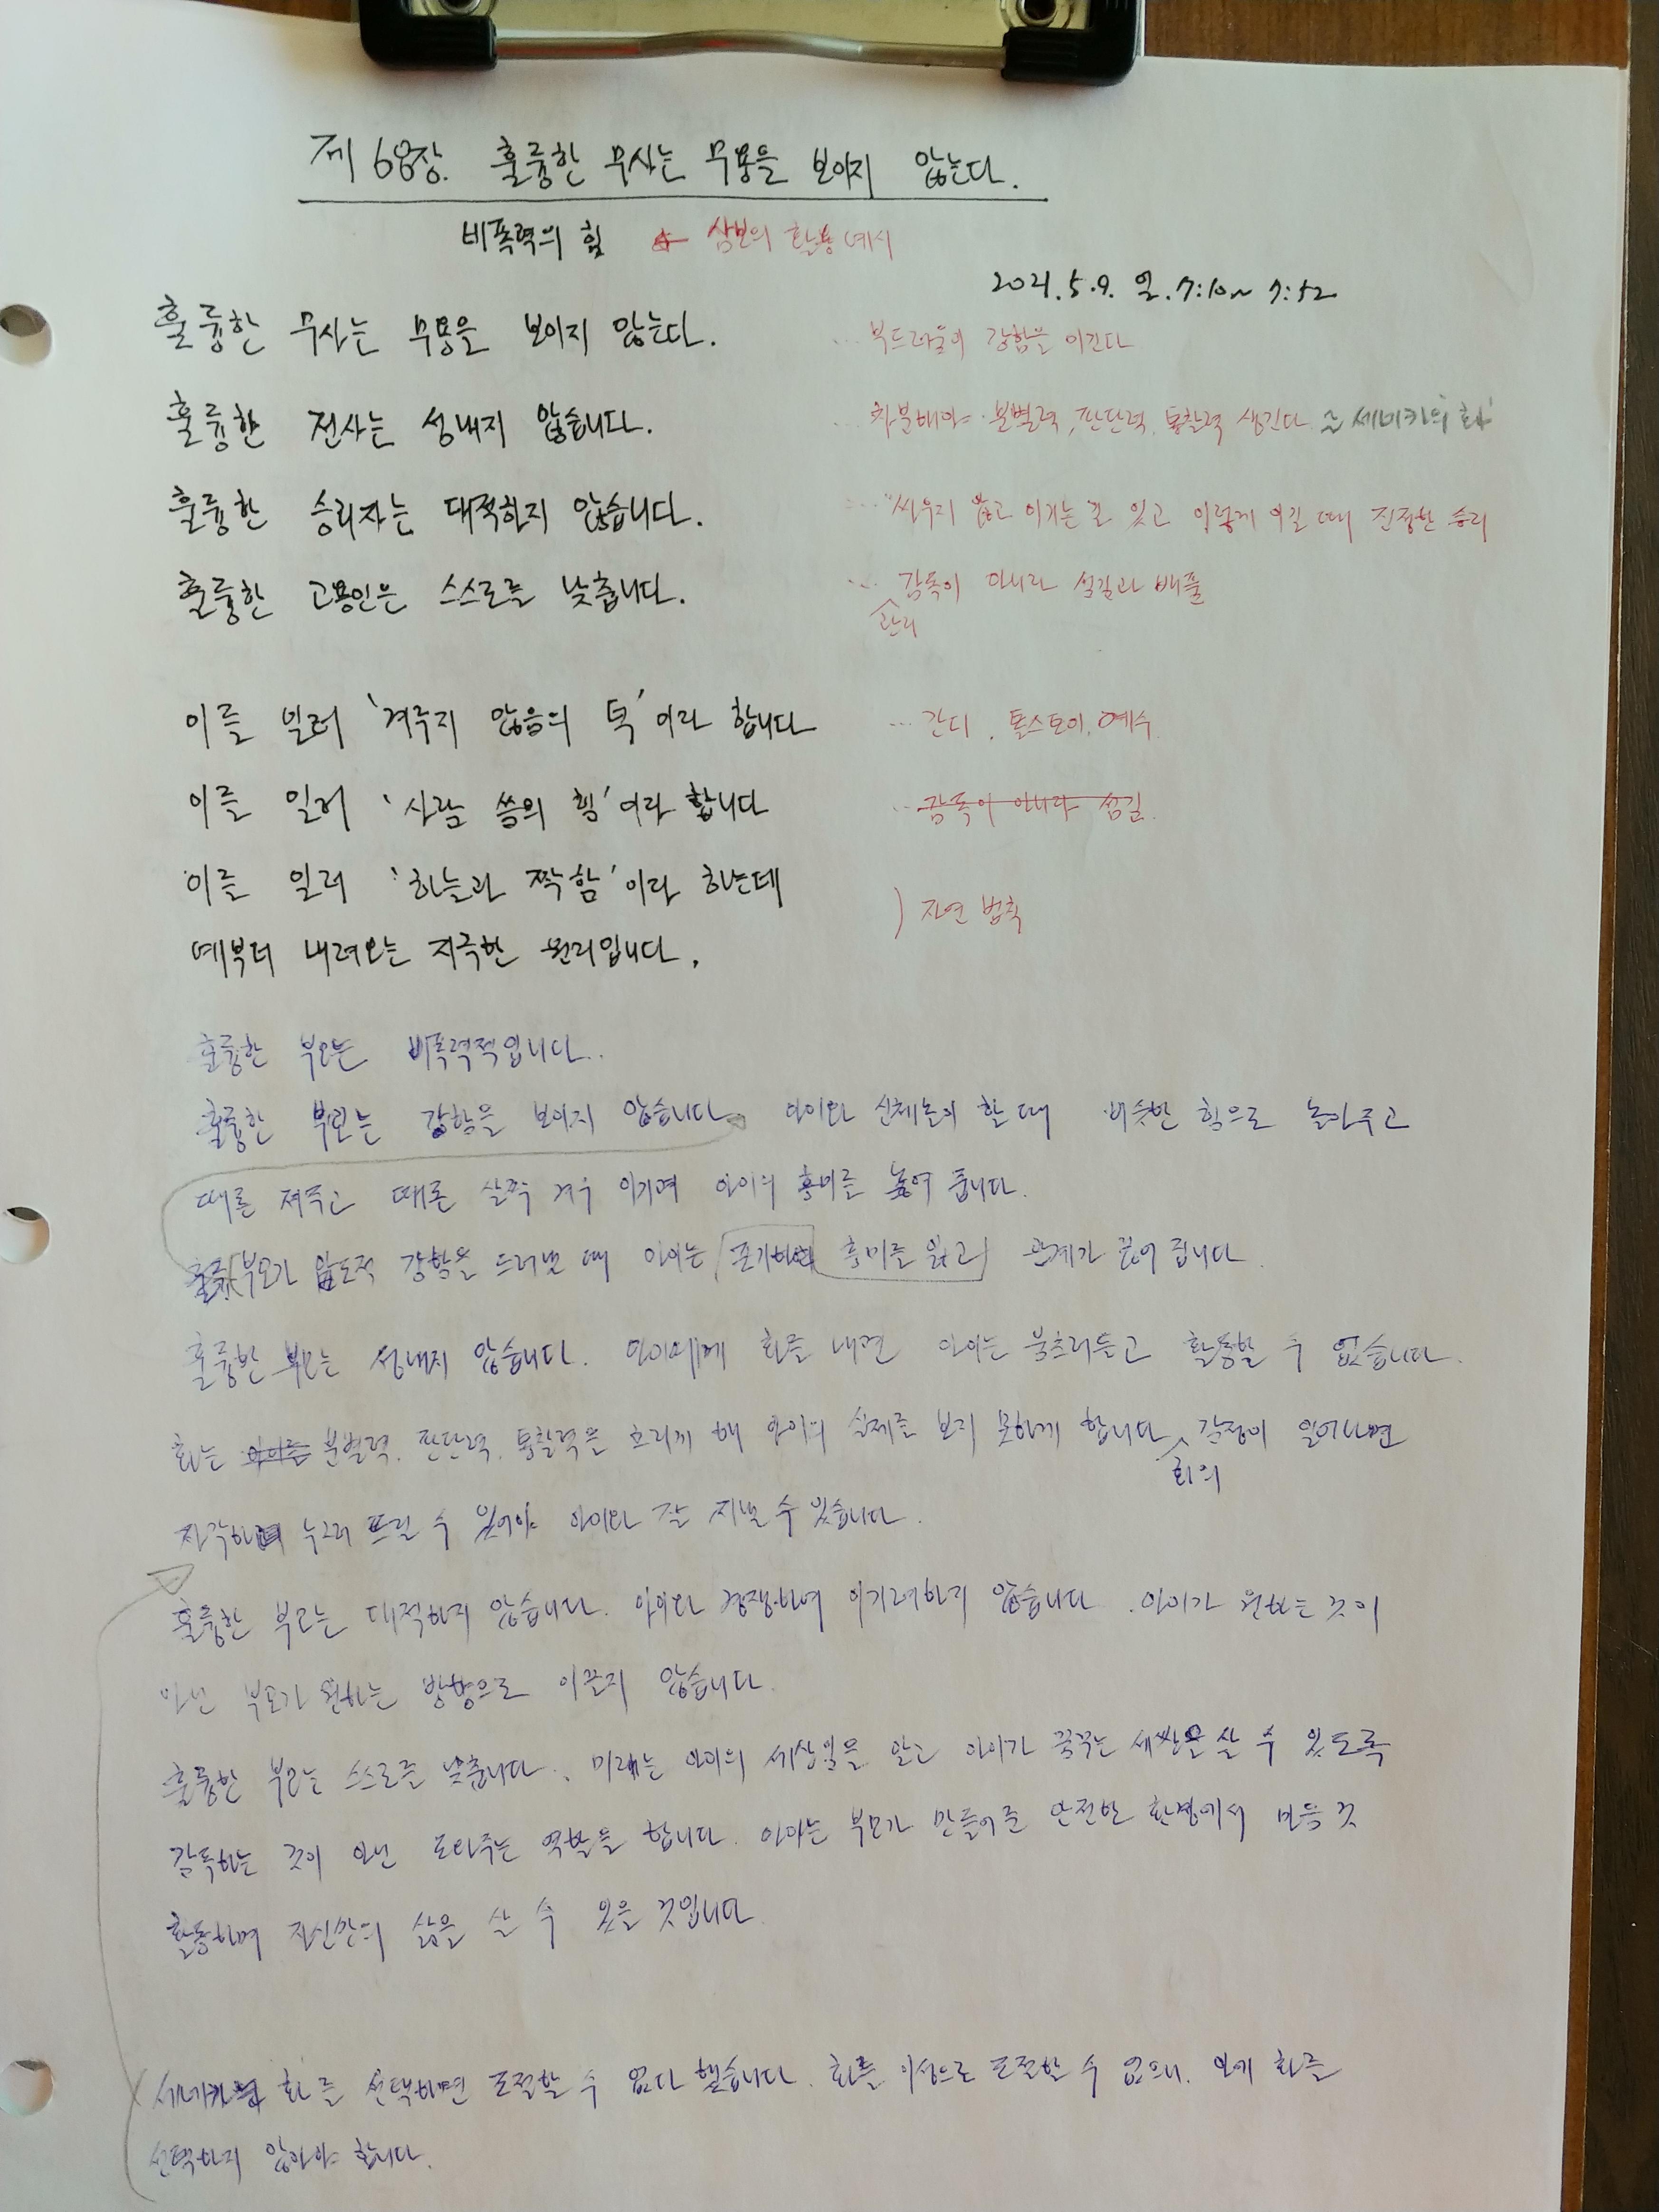 제 68장. 훌륭한 무사는 무용을 보이지 않는다.
비폭력의 힘 ☆ 삼보의 활용 예시
2021.5.9. 일. 7:10~ 7:52
훌륭한 무사는 무용을 보이지 않는다. … 부드러움이 강함을 이긴다
훌륭한 전사는 성내지 않습니다. … 차분해야 분별력, 판단력, 통찰력 생긴다 세네카의 '화'
훌륭한 승리자는 대적하지 않습니다. … 싸우지 않고 이기는 길 있고 이렇게 이길 때 진정한 승리
훌륭한 고용인은 스스로를 낮춥니다. … 감독이 아니라 섬김과 베풂
관리
이를 일러 '겨루지 않음의 덕'이라 합니다 … 간디, 톨스토이, 예수
이를 일러 '사람 씀의 힘'이라 합니다 … 감독이 아니라 섬김.
이를 일러 '하늘과 짝함'이라 하는데
) 자연 법칙
예부터 내려오는 지극한 원리입니다.
훌륭한 부모는 비폭력적입니다.
훌륭한 부모는 강함을 보이지 않습니다. 아이와 신체놀이 할 때 비슷한 힘으로 놀아주고
때론 져주고 때론 살짝 겨우 이기며 아이의 흥미를 높여 줍니다.
부모가 압도적 강함을 드러낼 때 아이는 포기하며 흥미를 잃고 관계가 끊어 집니다.
훌륭한 부모는 성내지 않습니다. 아이에게 화를 내면 아이는 움츠러들고 활동할 수 없습니다.
화는 아이를 분별력, 판단력, 통찰력을 흐리게 해 아이의 실제를 보지 못하게 합니다. 감정이 일어나면
화의
자각하며 누그러 뜨릴 수 있어야 아이와 잘 지낼 수 있습니다.
훌륭한 부모는 대적하지 않습니다. 아이와 경쟁하여 이기려하지 않습니다. 아이가 원하는 것이
아닌 부모가 원하는 방향으로 이끌지 않습니다.
훌륭한 부모는 스스로를 낮춥니다. 미래는 아이의 세상임을 알고 아이가 꿈꾸는 세상을 살 수 있도록
감독하는 것이 아닌 도와주는 역할을 합니다. 아이는 부모가 만들어준 안전한 환경에서 마음 것
활동하며 자신만의 삶을 살 수 있을 것입니다.
세네카는 화를 선택하면 조절할 수 없다 했습니다. 화를 이성으로 조절할 수 없으니, 아예 화를
선택하지 않아야 합니다.